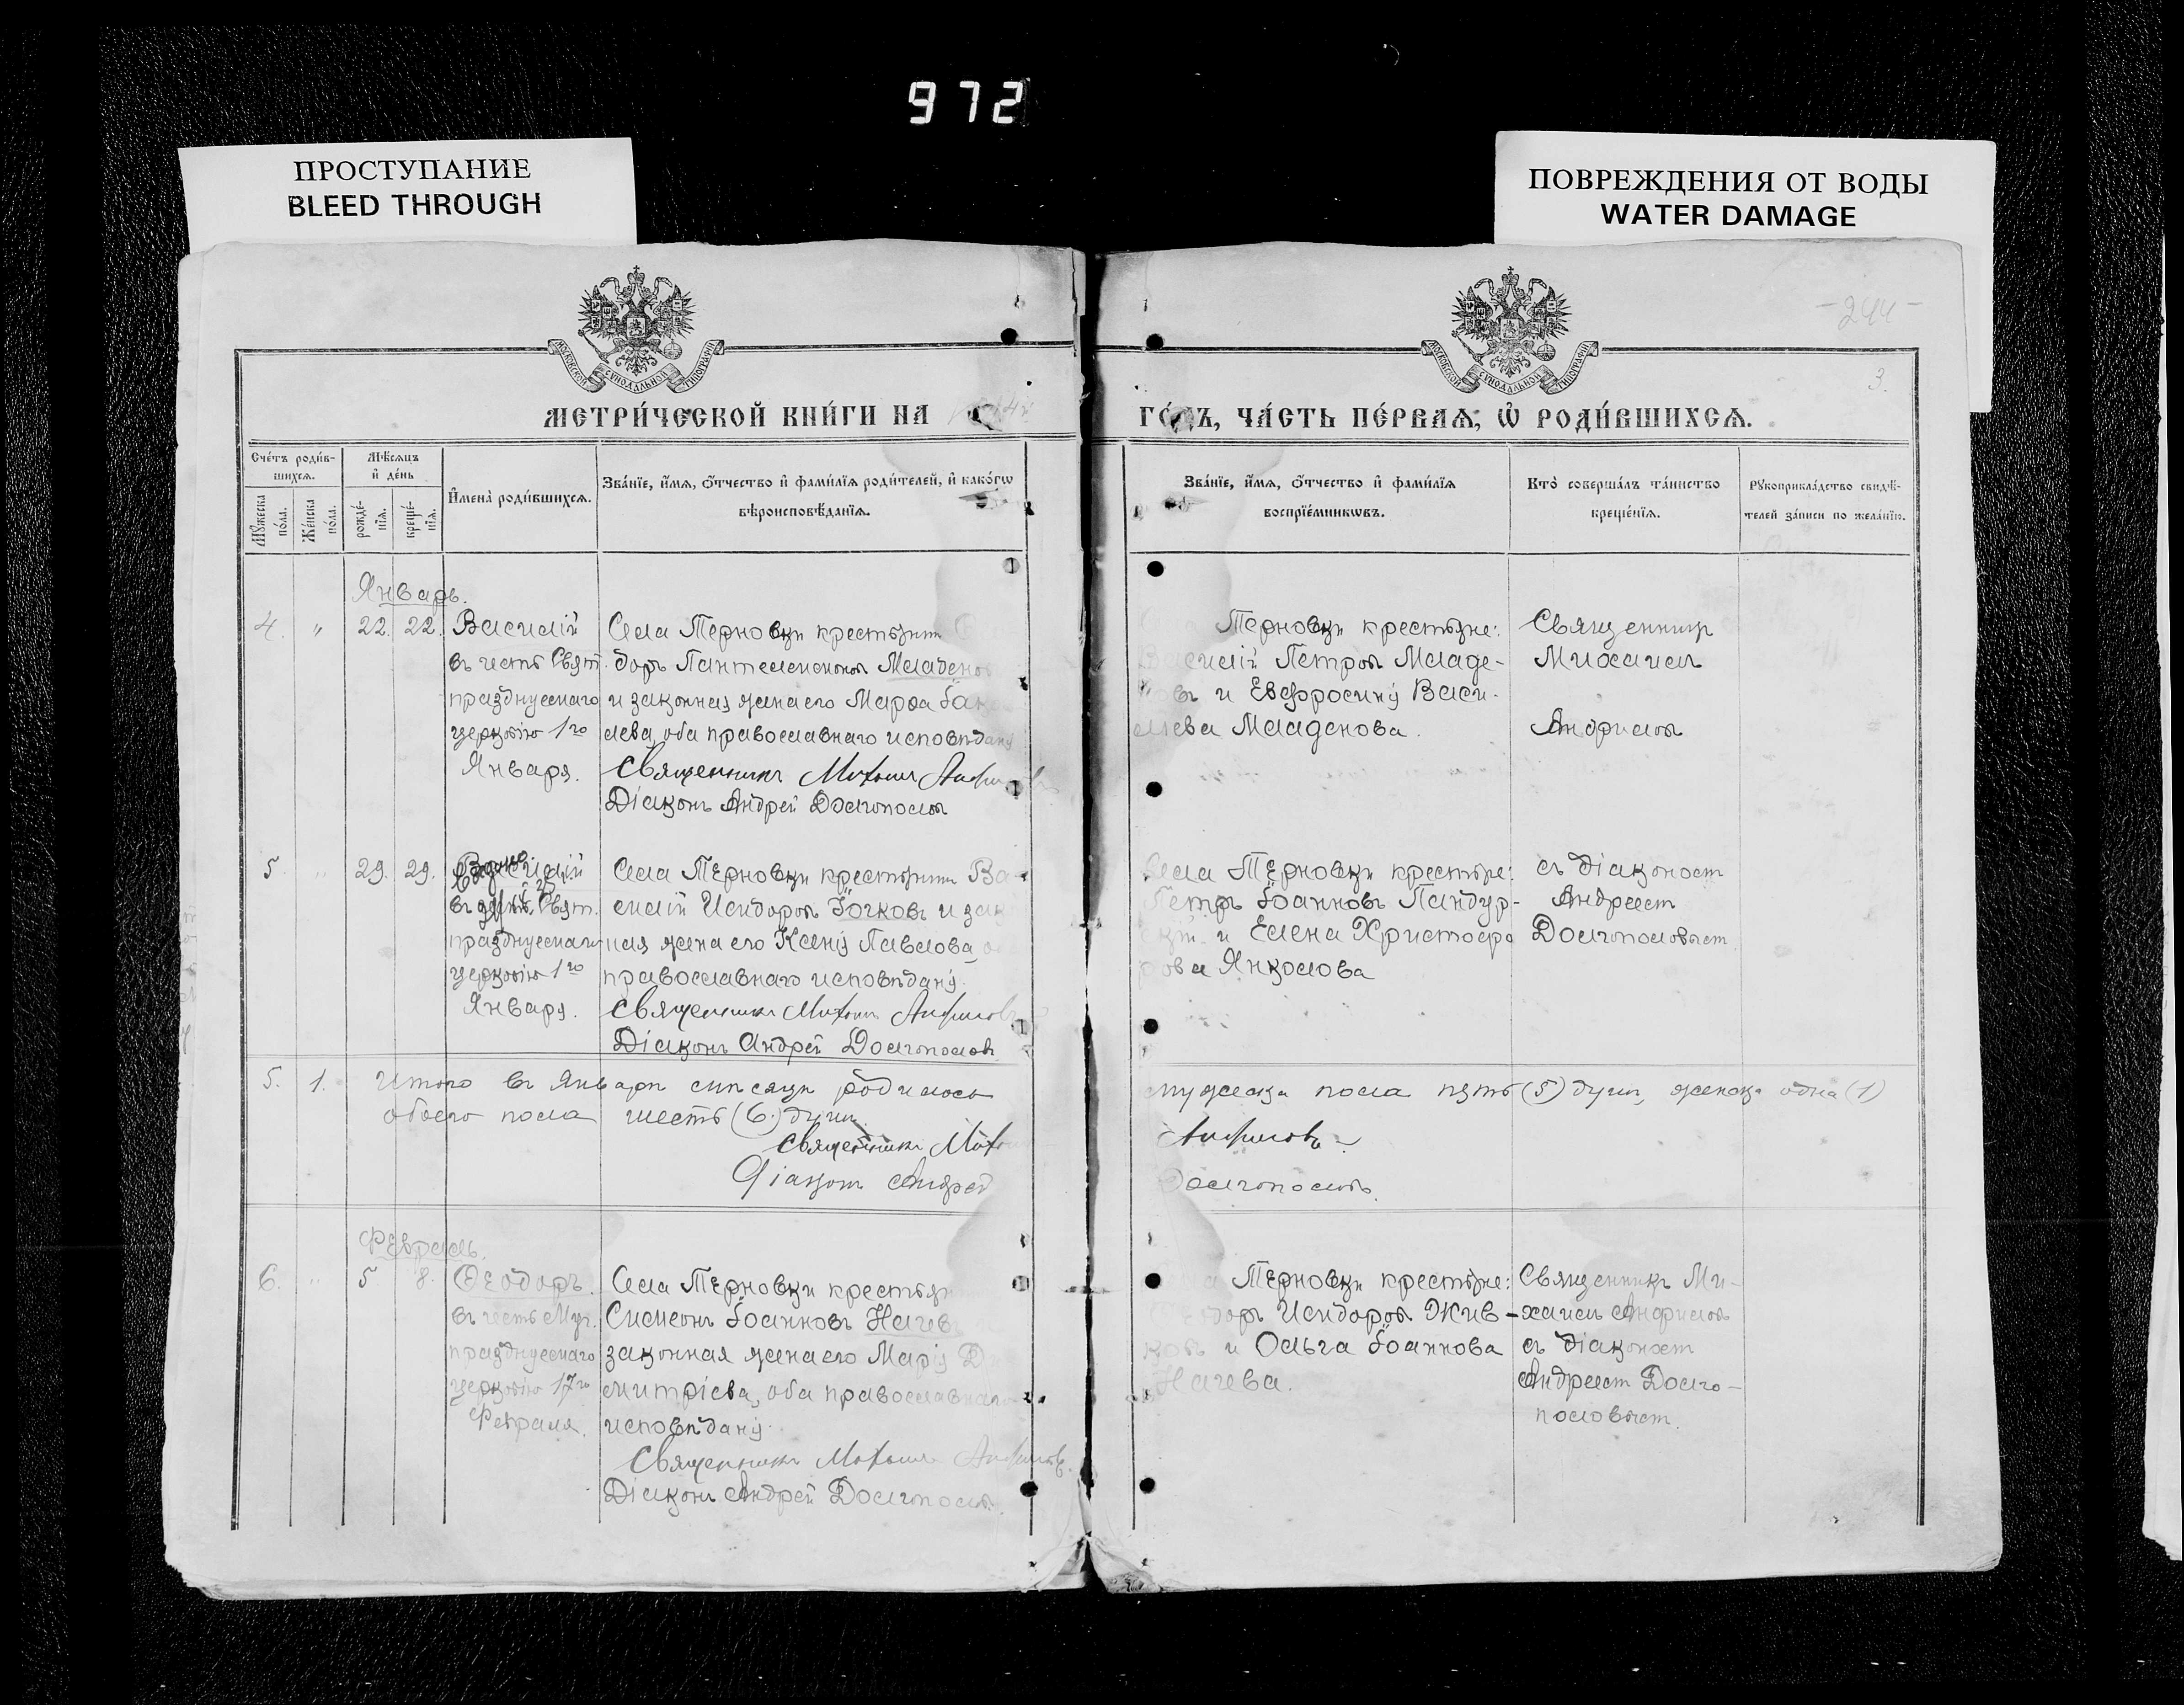 972
ПРОСТУПАНИЕ
BLEED THROUGH
ПОВРЕЖДЕНИЯ ОТ ВОДЫ
WATER DAMAGE
МОСКОВСКОЙ СѴНОДАЛЬНОЙ ТИПОГРАФІИ
МОСКОВСКОЙ СѴНОДАЛЬНОЙ ТИПОГРАФІИ
-244-
3.
МЕТРИ́ЧЕСКОЙ КНИ́ГИ НА
ГО́ДЪ, ЧА́СТЬ ПЕ́РВАѦ, Ѡ҆ РОДИ́ВШИХСѦ.
Сче́тъ роди́в-
шихсѧ.
Мѹ́жеска по́ла.
Же́нска по́ла.
Мѣ́сѧцъ
и҆ де́нь
рожде́-
нїѧ.
креще́-
нїѧ.
И҆мена̀ роди́вшихсѧ.
Зва́нїе, и҆́мѧ, ѻ҆́тчество и҆ фами́лїѧ роди́телей, и҆ како́гѡ
вѣроисповѣ́данїѧ.
Зва́нїе, и҆́мѧ, ѻ҆́тчество и҆ фами́лїѧ
воспрїе́мникѡвъ.
Кто̀ соверша́лъ та́инство
креще́нїѧ.
Рѹкоприкла́дство свидѣ́-
телей за́писи по жела́нїю.
Январь.
4. " 22. 22. Василій
въ честь Свят.
празднуемаго
церковію 1го
Января.
Села Терновки крестьянинъ
доръ Пантелеимоновъ Младенов
и законная жена его Марѳа
лева, оба православнаго исповѣданія
Священникъ Михаилъ Анфиловъ
Діаконъ Андрей Долгополовъ
Терновки крестьяне:
Василій Петровъ Младе-
новъ и Евфросинія Васи-
ліева Младенова.
Священникъ
Михаилъ
Анфиловъ
5. " 29. 29. Василій
въ честь Свят.
празднуемаго
церковію 1го
Января.
Села Терновки крестьянинъ Ва-
силій Исидоровъ Іочковъ и закон
ная жена его Ксенія Павлова
православнаго исповѣданія.
Священникъ Михаилъ Анфиловъ
Діаконъ Андрей Долгополовъ
Села Терновки крестьяне:
Петръ Іоанновъ Пандур-
скій и Елена Христофо
рова Янколова
съ діакономъ
Андреемъ
Долгополовымъ.
5. 1. Итого въ Январѣ мѣсяцѣ родилось
обоего пола шесть (6.) душъ
Священникъ Миха
Діаконъ Андрей
мужеска пола пять (5) душъ, женска одна (1)
Анфиловъ
Долгополовъ.
Февраль.
6. " 5 8. Ѳеодоръ.
въ честь Муч.
празднуемаго
церковію 17го
Февраля.
Села Терновки крестьян
Симеонъ Іоанновъ Начев
законная жена его Марія Ди
митріева, оба православнаго
исповѣданія.
Священникъ Михаилъ Анфиловъ.
Діаконъ Андрей Долгополовъ.
Терновки крестьяне:
Исидоровъ Жив-
ковъ и Ольга Іоаннова
Начева.
Священникъ Ми-
хаилъ Анфиловъ
съ діакономъ
Андреемъ Долго-
половымъ.